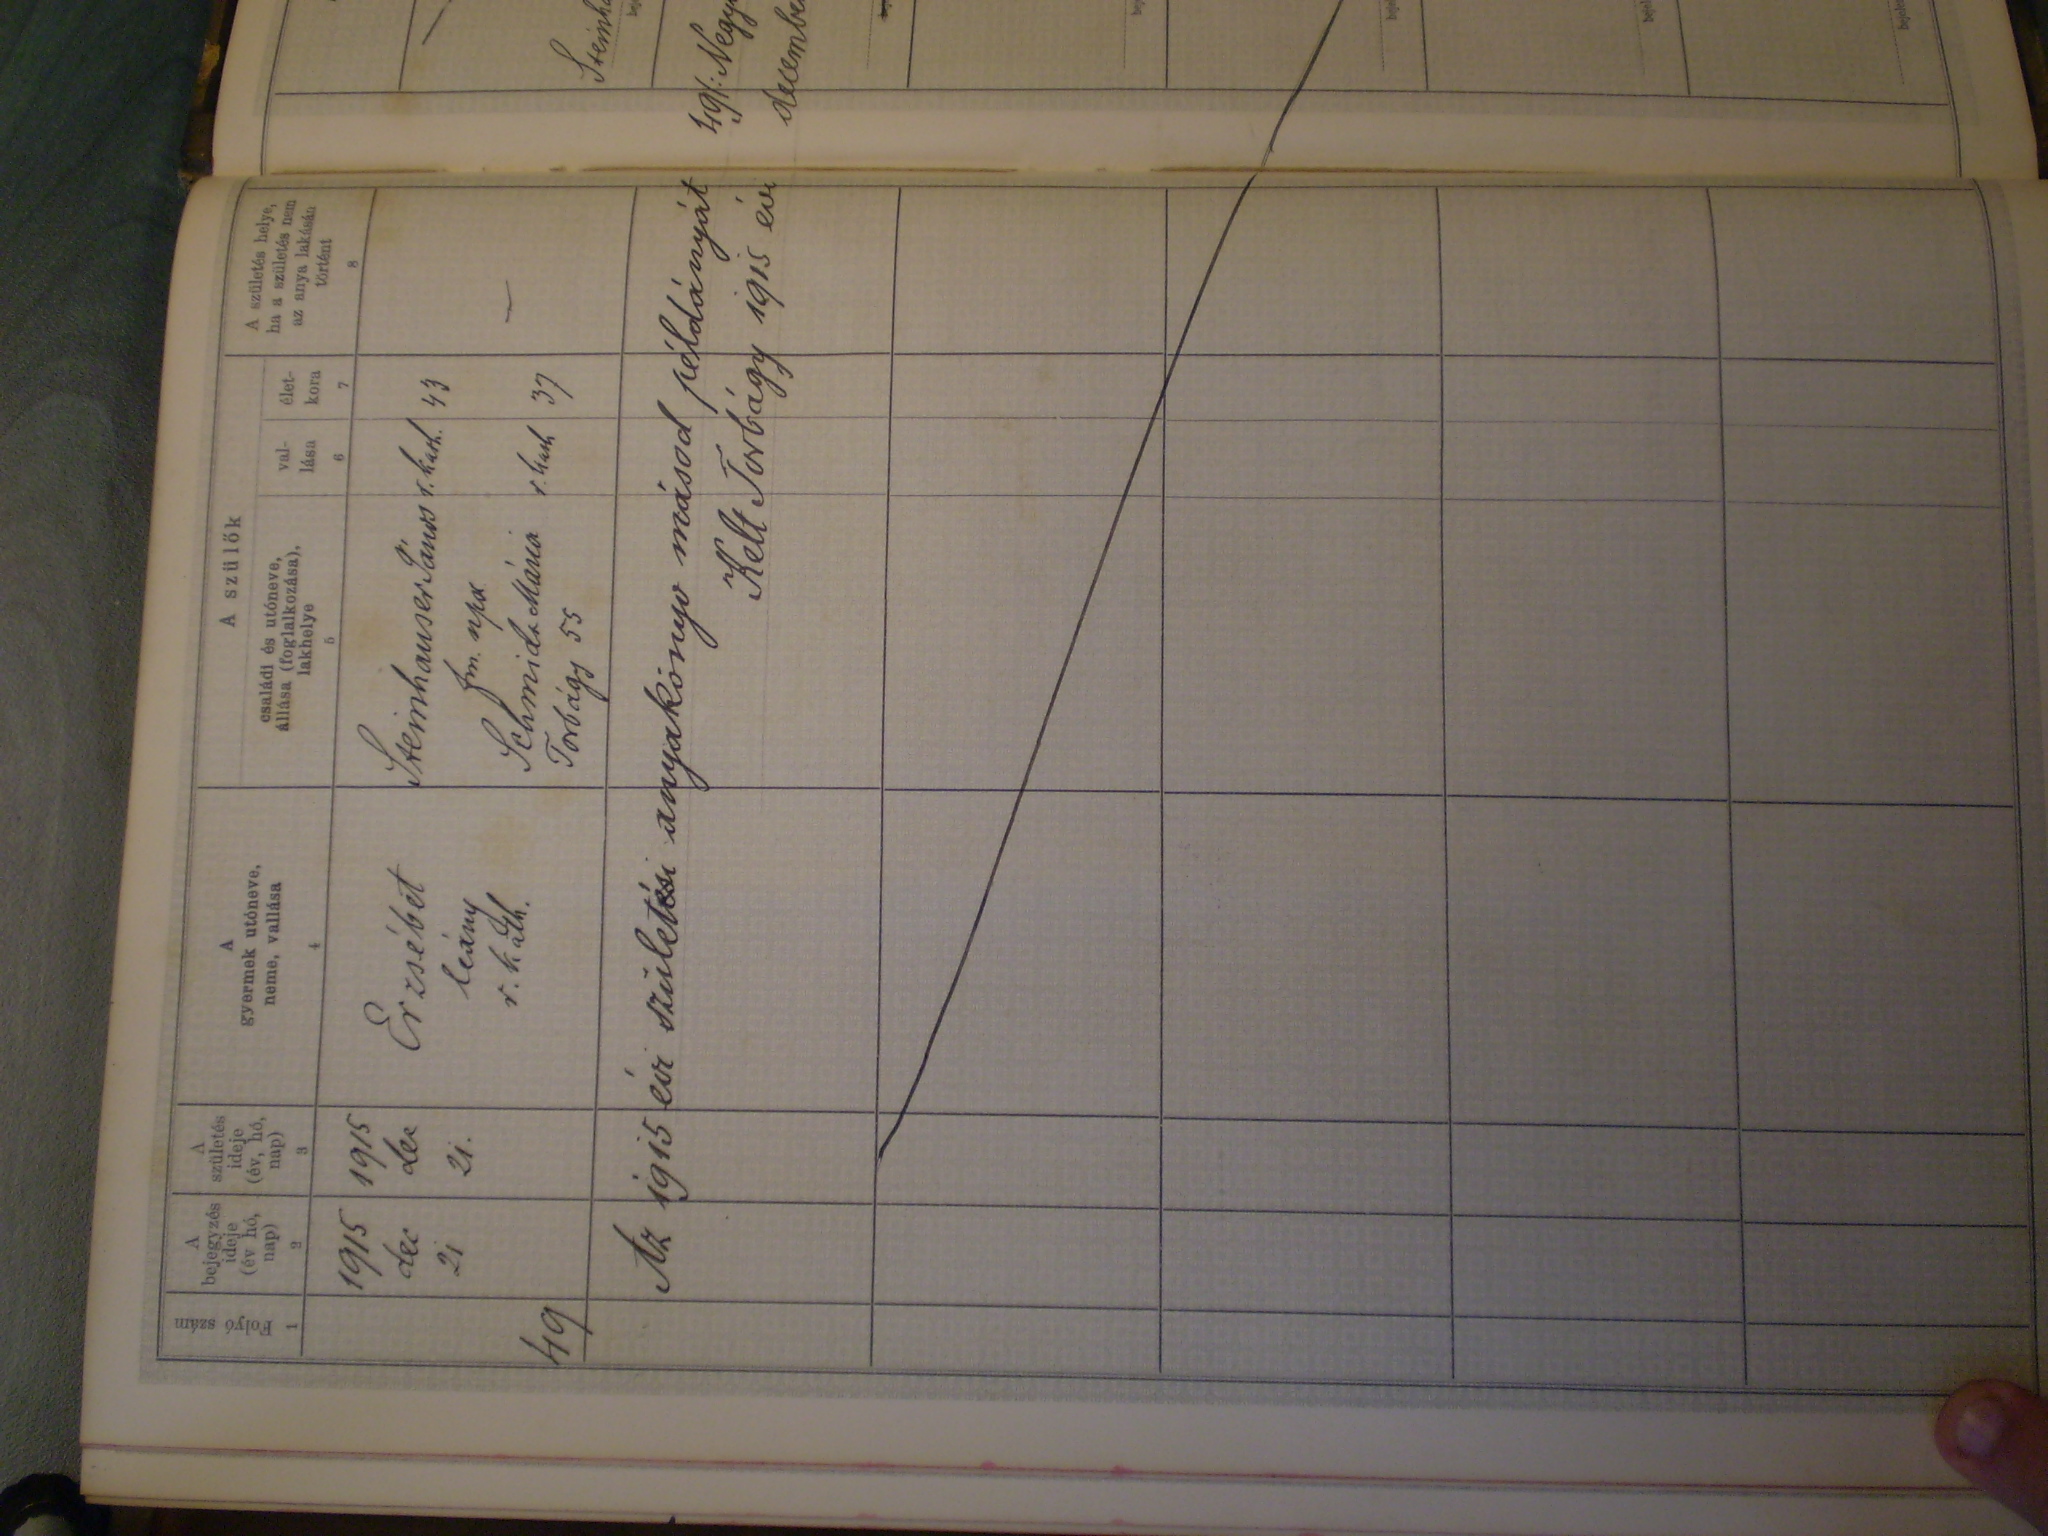 Folyó szám
1
A
bejegyzés
ideje
(év hó,
nap)
2
A
születés
ideje
(év, hó,
nap)
3
A
gyermek utóneve,
neme, vallása
4
A szülők
családi és utóneve,
állása (foglalkozása),
lakhelye
5
val-
lása
6
élet-
kora
7
A születés helye,
ha a születés nem
az anya lakásán
történt
8
49
1915
dec
21
1915
dec
21.
Erzsébet
leány
r. kath.
Steinhauser János r. kath. 43
fm. nps
Schmidt Mária r. kath 37
Torbágy 55
—
Az 1915 évi születési anyakönyv másod példányát 49/:Negy
Kelt Torbágy 1915 évi decembe
Steinha